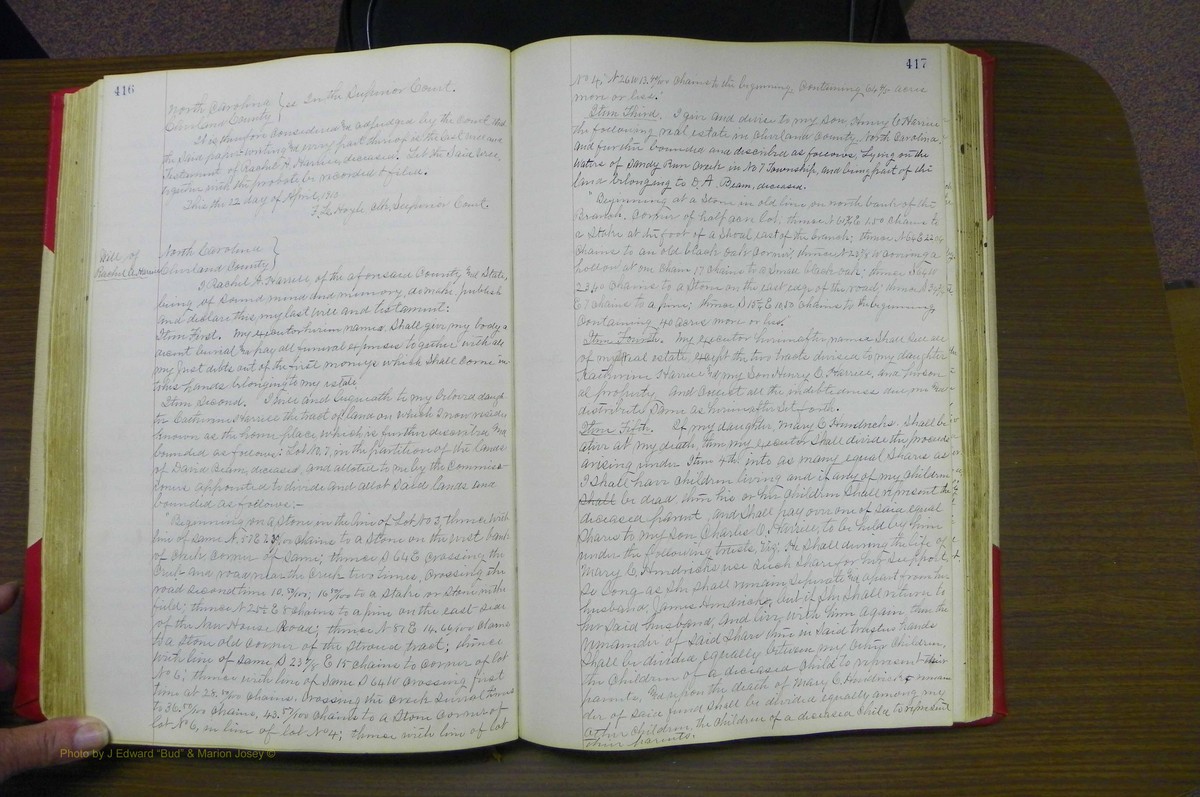 416
North Carolina } ss In the Superior Court.
Cleveland County
It is therefore considered & adjudged by the Court that
the said paper writing & every part thereof is the last will and
testament of Rachel A. Harrill, deceased. Let the said
together with the probate be recorded & filed.
This the 22 day of April, 1910.
Clk. Superior Court.
Will of
Rachel A. Harrill
North Carolina }
Cleveland County
I Rachel A. Harrill, of the aforesaid County and State,
being of sound mind and memory, do make, publish
and declare this, my last will and testament:
Item First. My executor herein named, shall give my body a
decent burial & pay all funeral expenses together with all
my just debts out of the first moneys which shall come in-
to his hands belonging to my estate.
Item Second. I give and bequeath to my beloved daugh-
ter Catherine Harrill the tract of land on which I now reside
known as the home place, which is further described and
bounded as follows: Lot No. 7, in the partition of the lands
of David Beam, deceased, and allotted to me by the Commiss-
ioners appointed to divide and allot said lands and
bounded as follows:-
Beginning on a Stone in the line of Lot No 3, thence with
line of same N. 57 E chains to a Stone on the west bank
of creek corner of same; thence S 64 E crossing the
creek and road near the creek two times, crossing the
road second time 10. 16 to a stake or stone in the
field; thence N E 8 chains to a pine on the east side
of the New House Road; thence N 87 E 14.66/100 chains
to a stone old corner of the Stroud tract; thence
with line of same S 23 E 15 chains to corner of lot
No 6; thence with line of same S 64 W crossing first
time at 28. chains, crossing the creek several times
to 36. chains, 43. chains to a Stone corner of
lot No 6, in line of lot No 4; thence with line of lot
417
No 4, N 26 W 13. chains to the beginning, containing acres
more or less.
Item Third. I give and devise to my son Henry C. Harrill
the following real estate in Cleveland County, North Carolina,
and further bounded and described as follows, Lying on the
waters of Sandy Run Creek in No 7 Township, and being part of the
land belonging to D. A. Beam, deceased.
"Beginning at a Stone in old line on north bank of the
Branch, corner of half acre lot, thence N E 1.50 chains to
a Stake at the foot of a shoal east of the branch; thence N E
chains to an old black oak corner, thence N W crossing a
hollow at one chain 17 chains to a small black oak; thence
23.60 chains to a Stone on the east edge of the road; thence
E 7 chains to a pine; thence S E 10.50 chains to the beginning
containing 40 acres more or less."
Item Fourth. My executor hereinafter named shall sell all
of my real estate, except the two tracts devised to my daughter
Catherine Harrill and my Son Henry C. Harrill, and person-
al property and collect all the indebtedness due me and
distribute same as hereinafter set forth.
Item Fifth. If my daughter, Mary C. Hendricks, shall be
alive at my death, then my executor shall divide the proceeds
arising under Item 4th into as many equal shares as
I shall have children living and if any of my children
shall be dead then his or her children shall represent the
deceased parent, and shall pay over one of said equal
shares to my son Charles D. Harrill, to be held by him
under the following trusts, viz: He shall during the life of
Mary C. Hendricks use such share for her support
so long as she shall remain separate and apart from her
husband, James Hendricks, but if she shall return to
her said husband, and live with him again then the
remainder of said share then in said trustees hands
shall be divided equally between my other children,
the children of a deceased child to represent their
parents, and upon the death of Mary C. Hendricks remain-
der of said fund shall be divided equally among my
other children, the children of a deceased child to represent
their parents.
Photo by J Edward "Bud" & Marion Josey ©